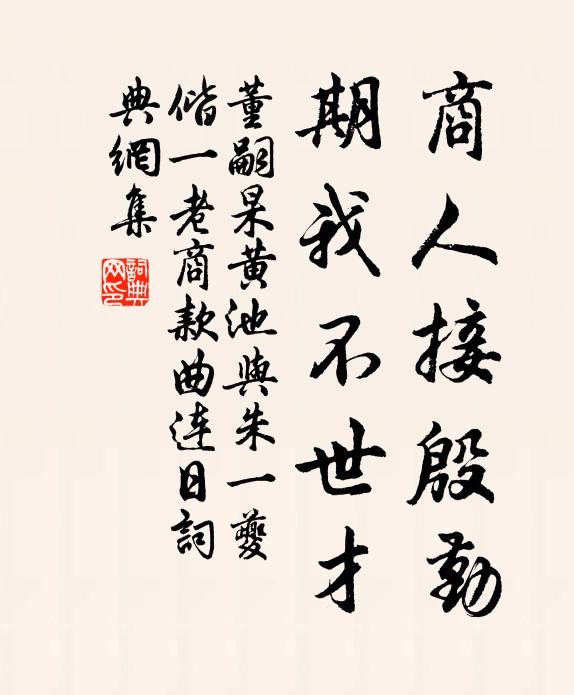 商人接殷勤
期我不世才
董嗣杲黄池與朱一夔
偕一老商款曲連日詞
典網集
詞典网印